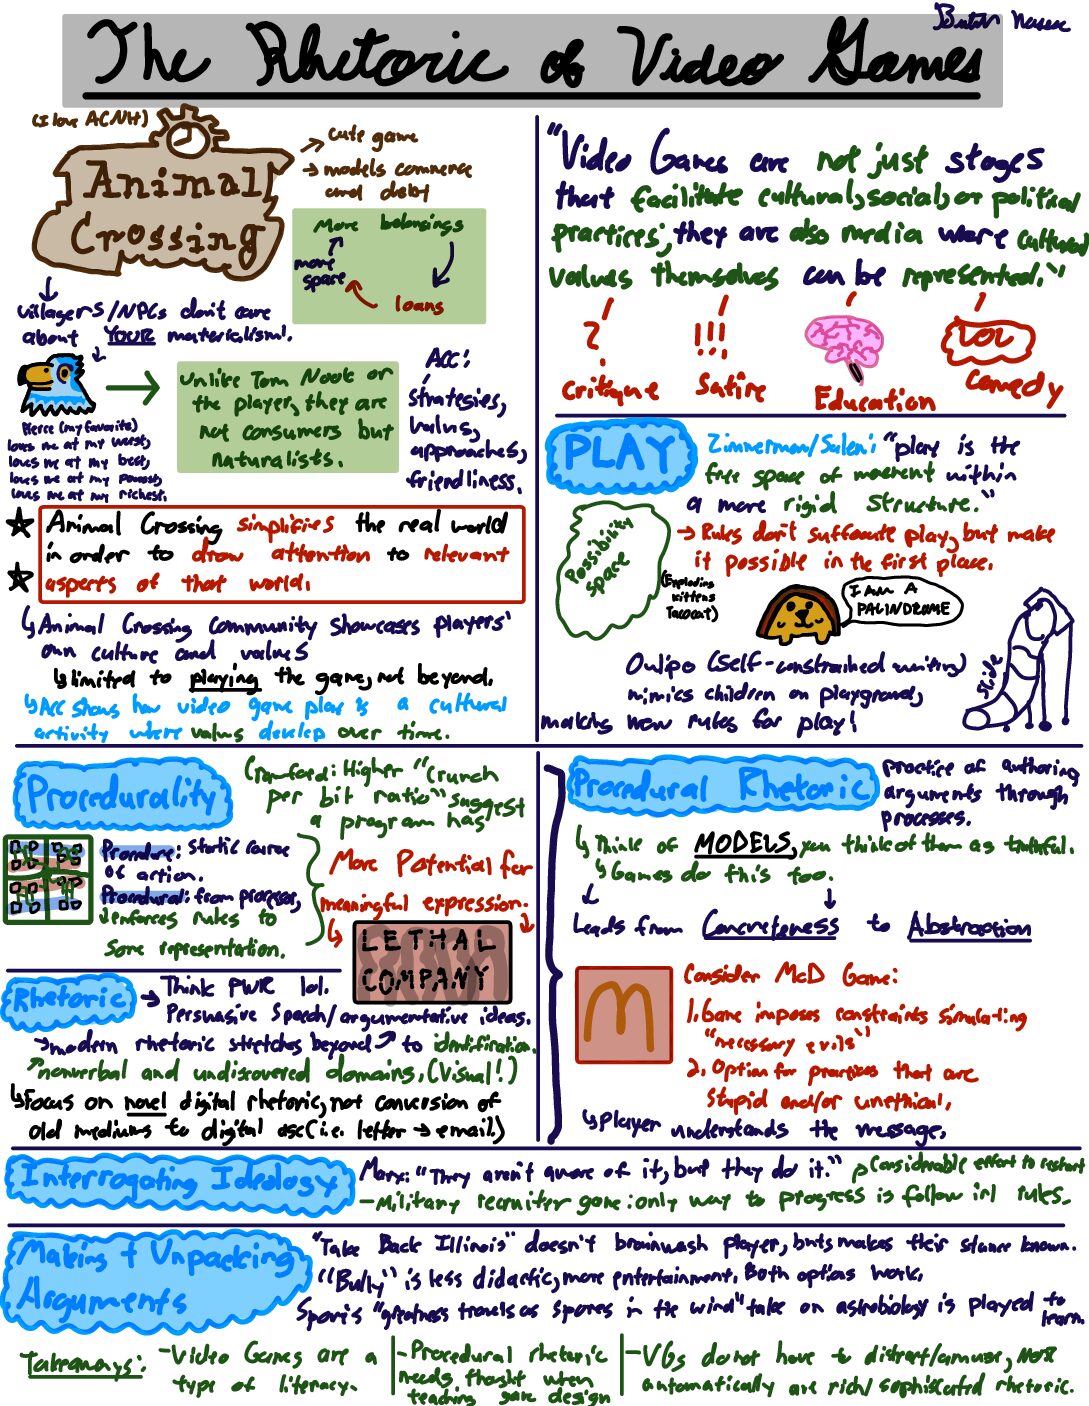 The Rhetoric of Video Games
(I love ACNH)
Animal
Crossing
→ cute game
→ models commerce
and debt
More belongings
loans
more
space
villagers/NPCs don't care
about YOUR materialism!
Pierce (my favorite)
loves me at my worst,
loves me at my best,
loves me at my poorest,
loves me at my richest.
Unlike Tom Nook or
the player, they are
not consumers but
naturalists.
ACC:
strategies,
values,
approaches,
friendliness.
Animal Crossing simplifies the real world
in order to draw attention to relevant
aspects of that world.
Animal Crossing community showcases players'
own culture and values
limited to playing the game, not beyond.
ACC shows how video game play is a cultural
activity where values develop over time.
"Video Games are not just stages
that facilitate cultural, social, or political
practices; they are also media where cultural
values themselves can be represented."
?
!!!
LOL
Critique
Satire
Education
Comedy
PLAY
Zimmerman/Salen: "play is the
free space of movement within
a more rigid structure."
→ Rules don't suffocate play, but make
it possible in the first place.
Possibility
space
(Exploding
Kittens
Tacocat)
I AM A
PALINDROME
Oulipo (self-constrained writing)
mimics children on playground,
making new rules for play!
Procedurality
Crawford: Higher "crunch
per bit ratio" suggest
a program has
More Potential for
meaningful expression.
Procedure: static course
of action.
Procedural: from processes,
enforces rules to
some representation.
LETHAL
COMPANY
Rhetoric
→ Think PWR lol.
Persuasive Speech/argumentative ideas.
→ modern rhetoric stretches beyond to identification.
nonverbal and undiscovered domains. (Visual!)
Focus on novel digital rhetoric, not conversion of
old mediums to digital (i.e. letter → email)
Procedural Rhetoric
practice of authoring
arguments through
processes.
Think of MODELS, you think of them as truthful.
Games do this too.
Leads from Concreteness to Abstraction
Consider McD Game:
1. Game imposes constraints simulating
"necessary evils"
2. Option for practices that are
stupid and/or unethical.
Player understands the message.
Interrogating Ideology
Marx: "They aren't aware of it, but they do it."
Considerable effort to restart
- Military recruiter game: only way to progress is follow irl rules.
Making + Unpacking
Arguments
"Take Back Illinois" doesn't brainwash player, but makes their stance known.
"Bully" is less didactic, more entertainment. Both options work.
Spore's "greatness travels as spores in the wind" take on astrobiology is played to
learn.
Takeaways:
- Video Games are a
type of literacy.
- Procedural rhetoric
needs thought when
teaching game design
- VGs do not have to distract/amuse,
automatically are rich/sophisticated rhetoric.